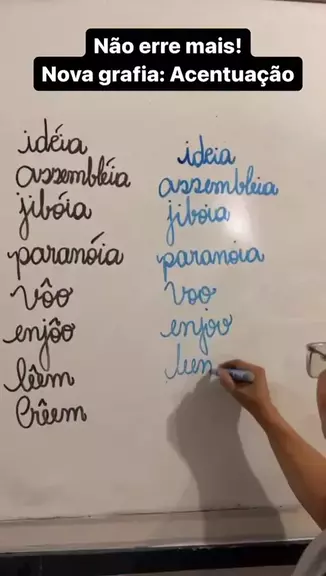 Não erre mais!
Nova grafia: Acentuação
idéia
assembléia
jibóia
paranóia
vôo
enjôo
lêem
Crêem
ideia
assembleia
jiboia
paranoia
voo
enjoo